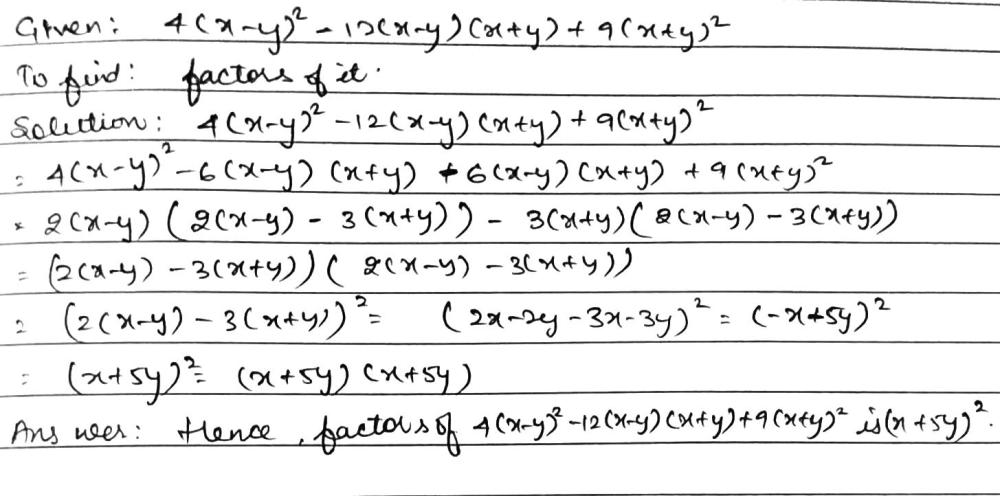 Given: 4(x-y)² - 12(x-y)(x+y) + 9(x+y)²
To find: factors of it.
Solution: 4(x-y)² - 12(x-y)(x+y) + 9(x+y)²
= 4(x-y)² - 6(x-y)(x+y) + 6(x-y)(x+y) + 9(x+y)²
= 2(x-y)(2(x-y) - 3(x+y)) - 3(x+y)(2(x-y) - 3(x+y))
= (2(x-y) - 3(x+y))(2(x-y) - 3(x+y))
= (2(x-y) - 3(x+y))² = (2x-2y-3x-3y)² = (-x+5y)²
= (x+5y)² = (x+5y)(x+5y)
Answer: Hence, factors of 4(x-y)²-12(x-y)(x+y)+9(x+y)² is (x+5y)².